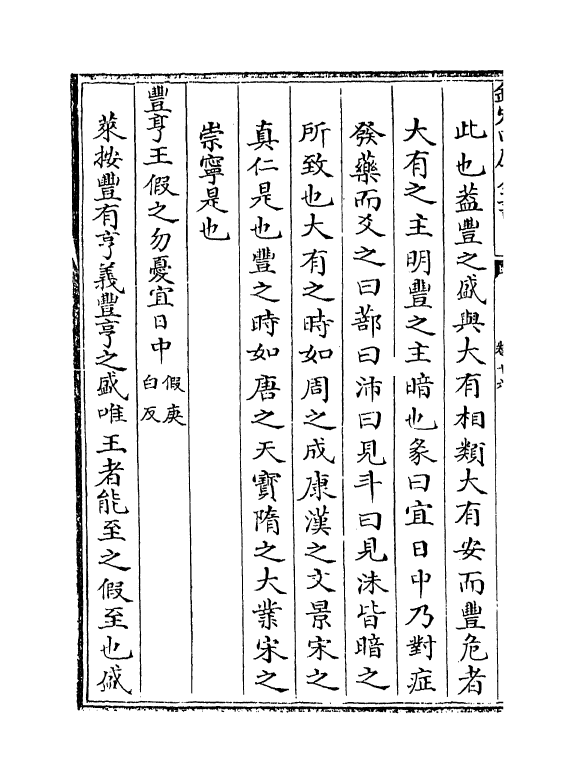 此也葢豐之盛與大有相類大有安而豐危者
大有之主明豐之主暗也彖曰宜日中乃對症
發藥而爻之曰蔀曰沛曰見斗曰見沬皆暗之
所致也大有之時如周之成康漢之文景宋之
真仁是也豐之時如唐之天寶隋之大業宋之
崇寧是也
豐亨王假之勿憂宜日中假庚白反
萊按豐有亨義豐亨之盛唯王者能至之假至也盛